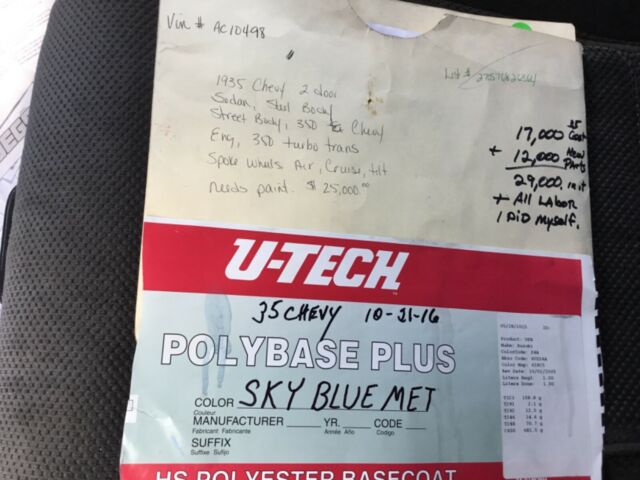 Vin # AC10498
Lot #
1935 Chevy 2 door
Sedan, Steel Body
Street Body, 350 Chevy
Eng, 350 turbo trans
Spoke Wheels Air, Cruise, tilt
needs paint. $25,000.00
35 Cost
17,000
+ 12,000 New Parts
29,000 in it
+ All LABOR
I DiD Myself.
U-TECH
35 CHEVY 10-21-16
POLYBASE PLUS
COLOR SKY BLUE MET
Couleur
MANUFACTURER YR. CODE
Fabricant Fabricante Année Año Codigo
SUFFIX
Suffixe Sufijo
HS POLYESTER BASECOAT